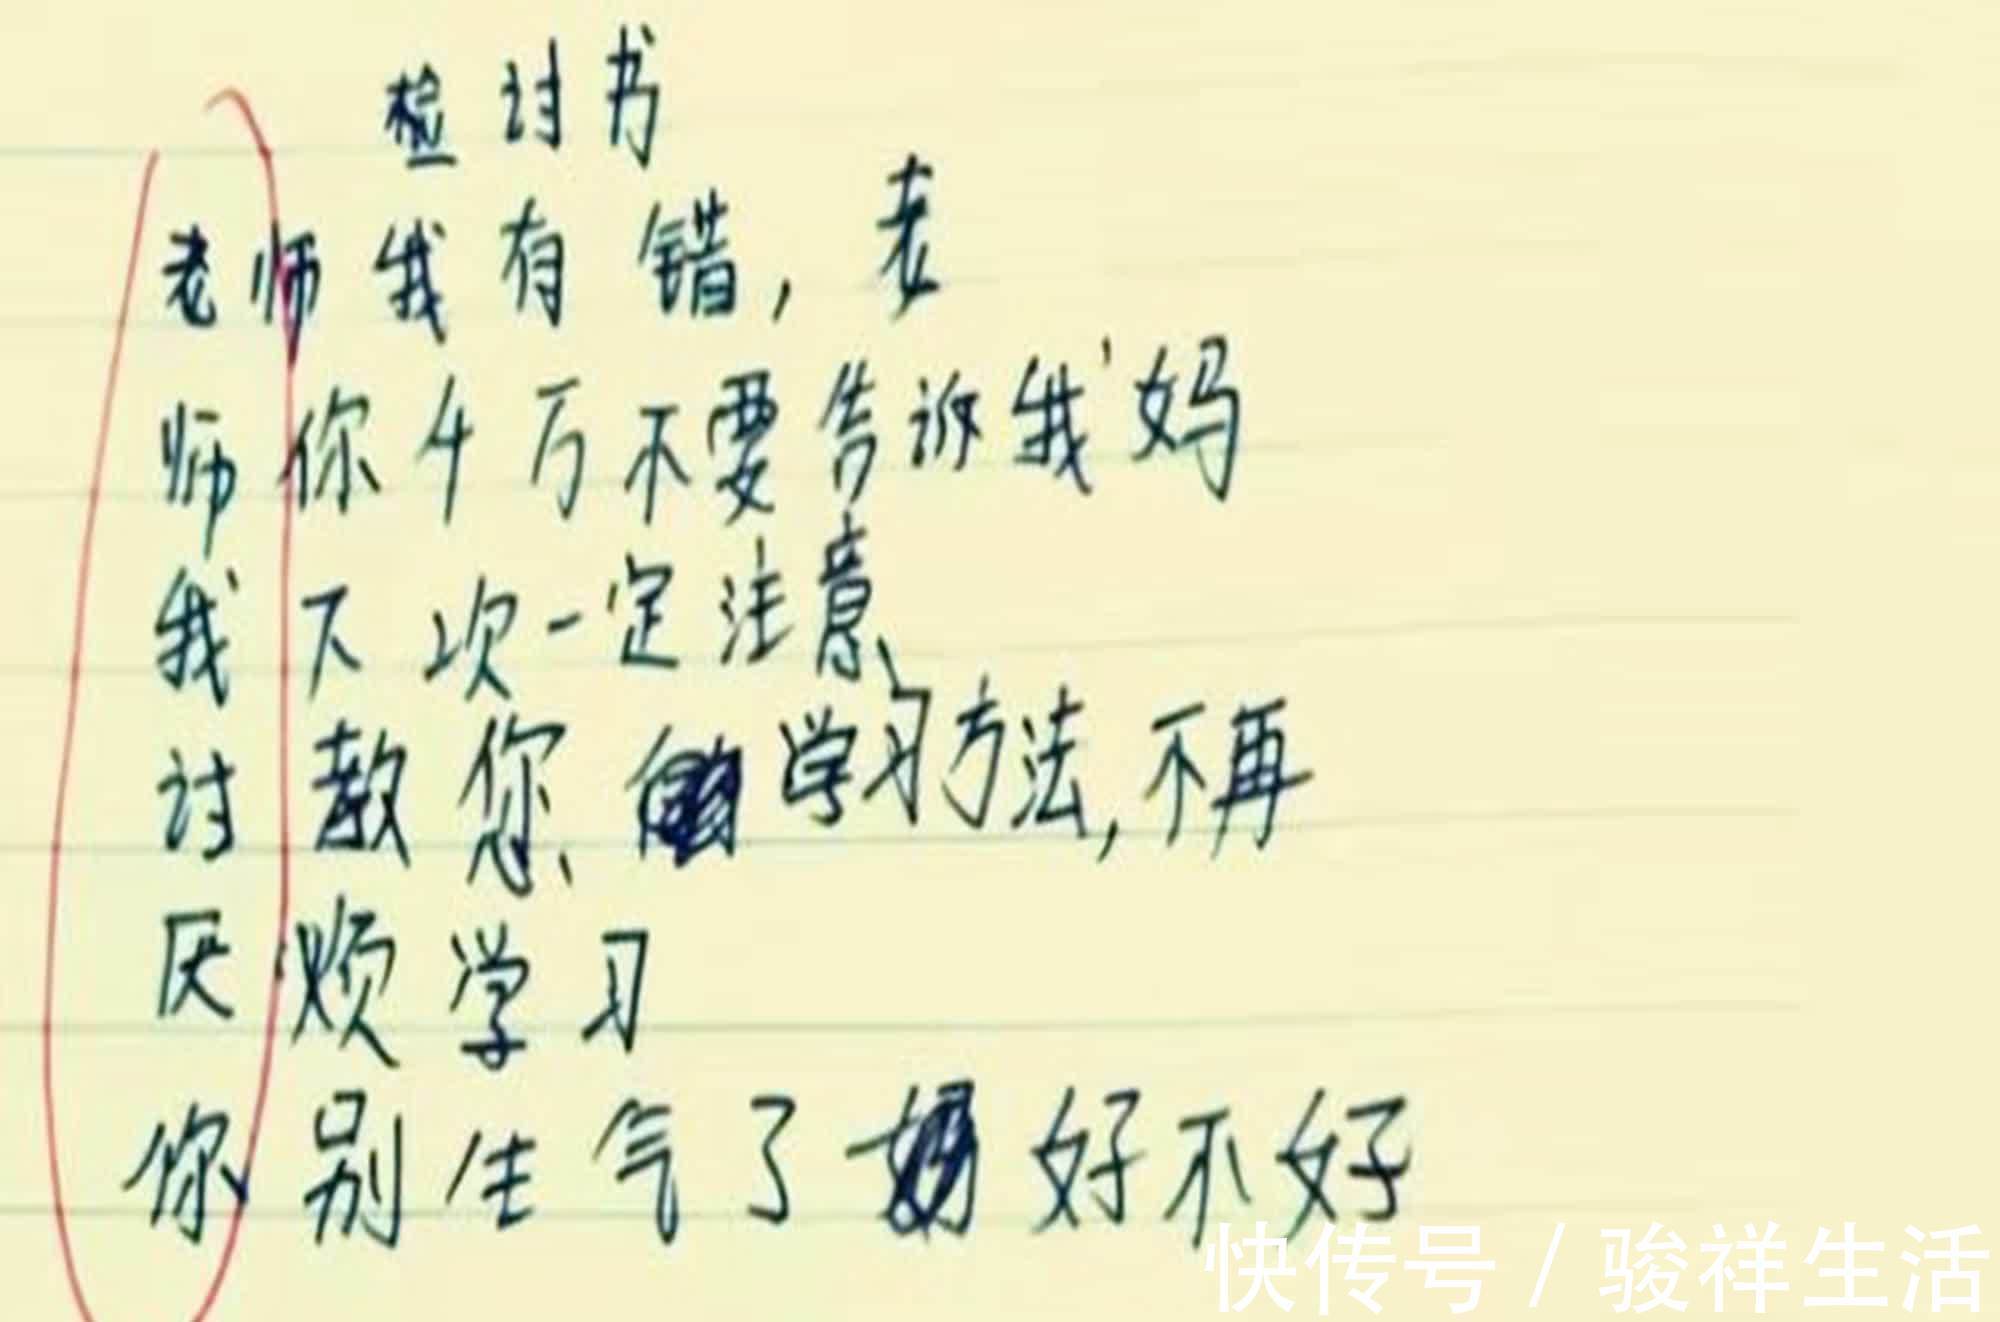 检讨书
老师我有错，老
师你千万不要告诉我妈
我下次一定注意、
讨教您、学习方法，不再
厌烦学习
你别生气了好不好
快传号 / 骏祥生活